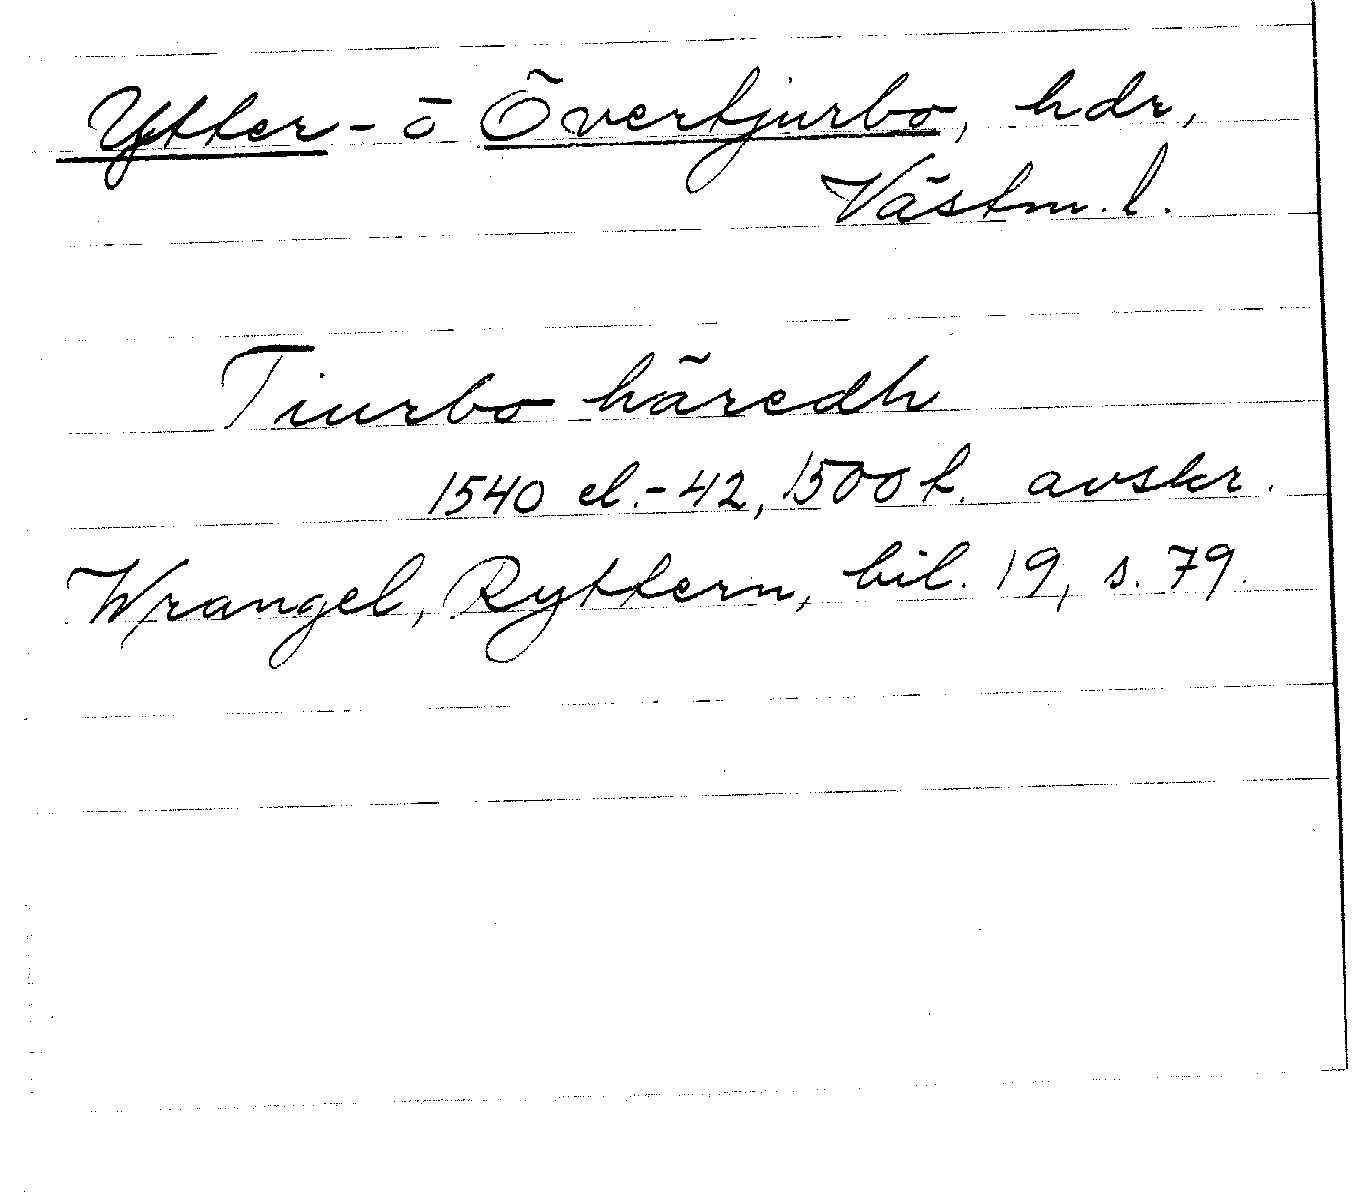 Ytter- o Övertjurbo, hdr,
Västm. l.
Tiurbo häredh
1540 el.-42, 1500t. avskr.
Wrangel, Ryttern, bil. 19, s. 79.